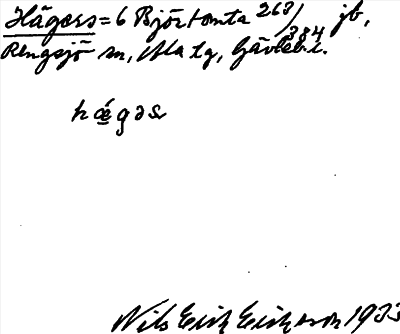 Hägers = 6 Björtomta 263/384 jb,
Rengsjö sn, Ala tg, Gävleb. l.
hǽgəs
Nils Erik Eriksson 1933